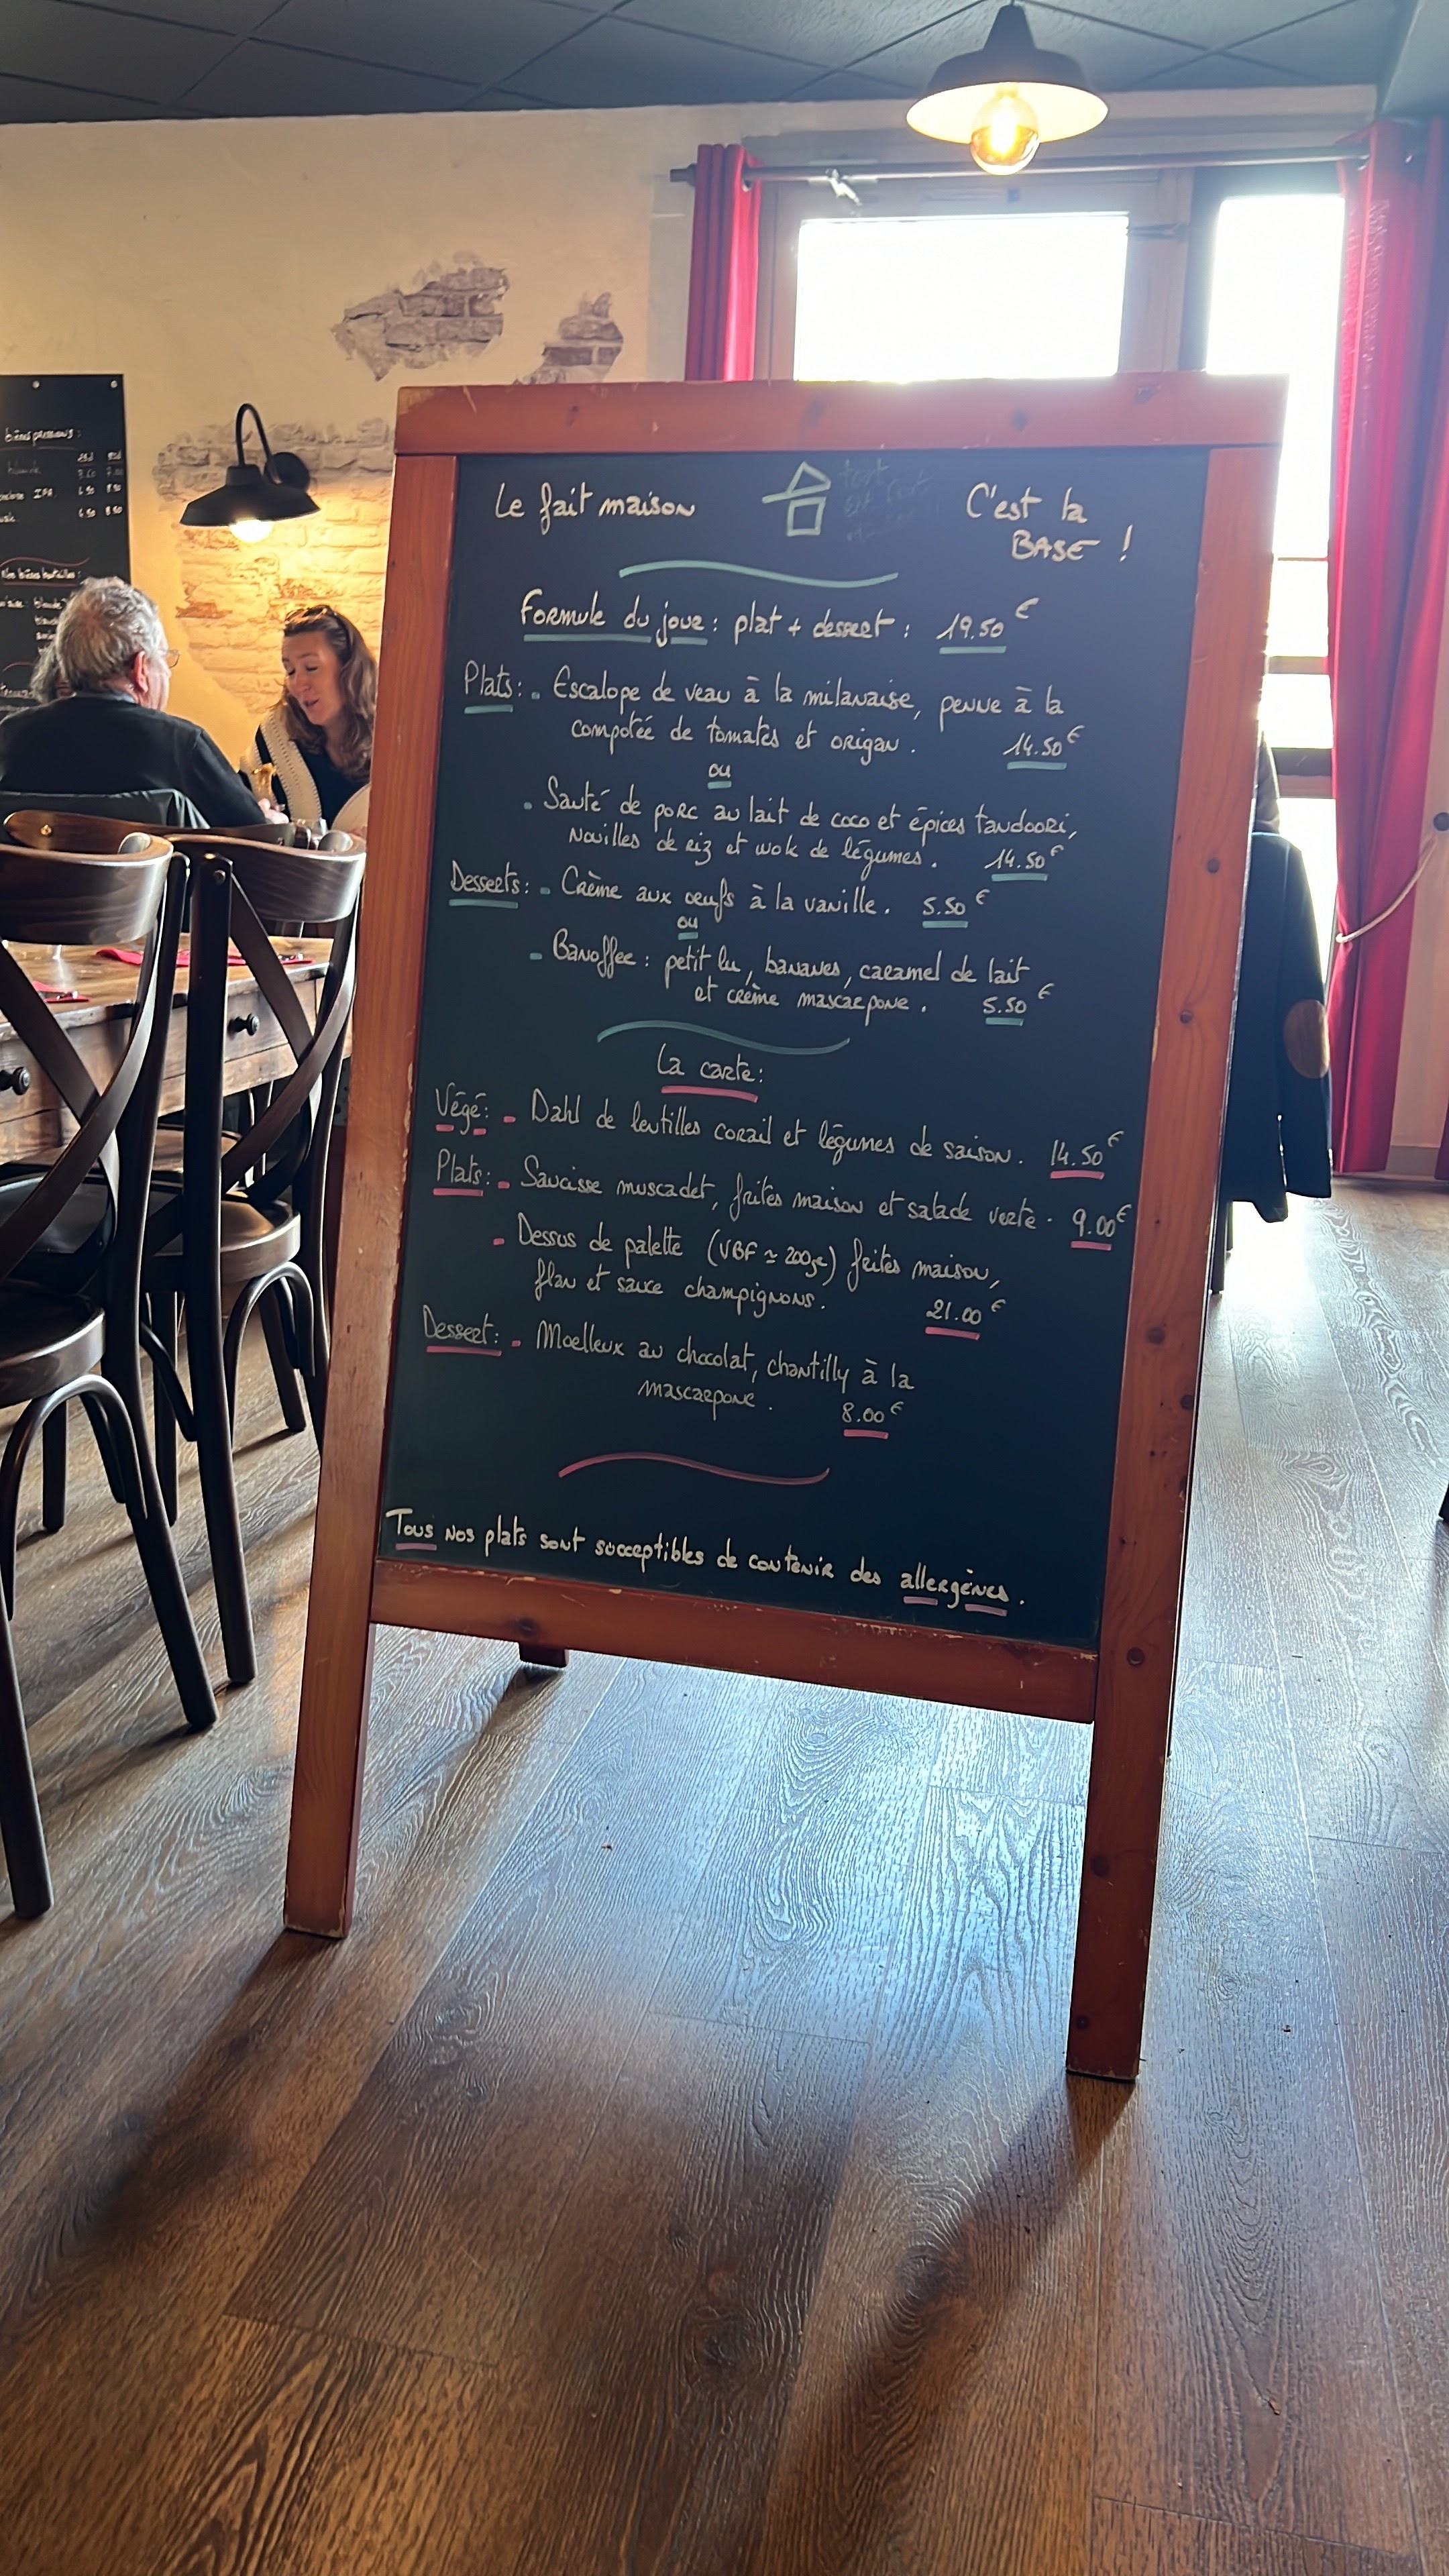 Le fait maison
C'est la
BASE !
Formule du jour : plat + dessert : 19.50 €
Plats : - Escalope de veau à la milanaise, penne à la
compotée de tomates et origan . 14.50 €
ou
- Sauté de porc au lait de coco et épices tandoori,
nouilles de riz et wok de légumes . 14.50 €
Desserts : - Crème aux oeufs à la vanille . 5.50 €
ou
- Banoffee : petit lu, bananes, caramel de lait
et crème mascarpone . 5.50 €
La carte :
Végé : - Dahl de lentilles corail et légumes de saison . 14.50 €
Plats : - Saucisse muscadet, frites maison et salade verte . 9.00 €
- Dessus de palette (VBF ≃ 200gr) frites maison,
flan et sauce champignons . 21.00 €
Dessert : - Moelleux au chocolat, chantilly à la
mascarpone . 8.00 €
Tous nos plats sont susceptibles de contenir des allergènes .
bières pressions :
IPA 4.50 8.50
4.50 8.50
Nos bières bouteilles :